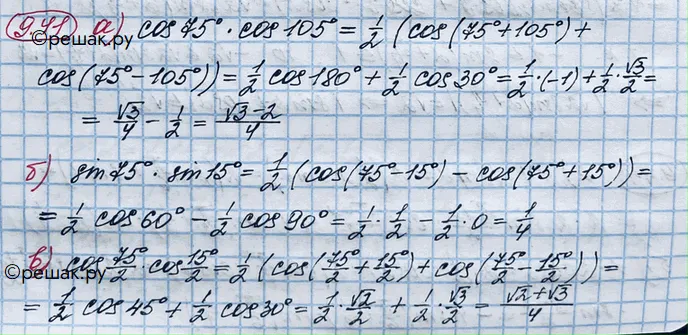 9.41 а) cos 75° · cos 105° = 1/2 (cos(75° + 105°) +
©решак.ру
cos(75° − 105°)) = 1/2 cos 180° + 1/2 cos 30° = 1/2 · (−1) + 1/2 · √3/2 =
= √3/4 − 1/2 = (√3 − 2)/4
б) sin 75° · sin 15° = 1/2 (cos(75° − 15°) − cos(75° + 15°)) =
= 1/2 cos 60° − 1/2 cos 90° = 1/2 · 1/2 − 1/2 · 0 = 1/4
в) cos 75°/2 · cos 15°/2 = 1/2 (cos(75°/2 + 15°/2) + cos(75°/2 − 15°/2)) =
©решак.ру
= 1/2 cos 45° + 1/2 cos 30° = 1/2 · √2/2 + 1/2 · √3/2 = (√2 + √3)/4